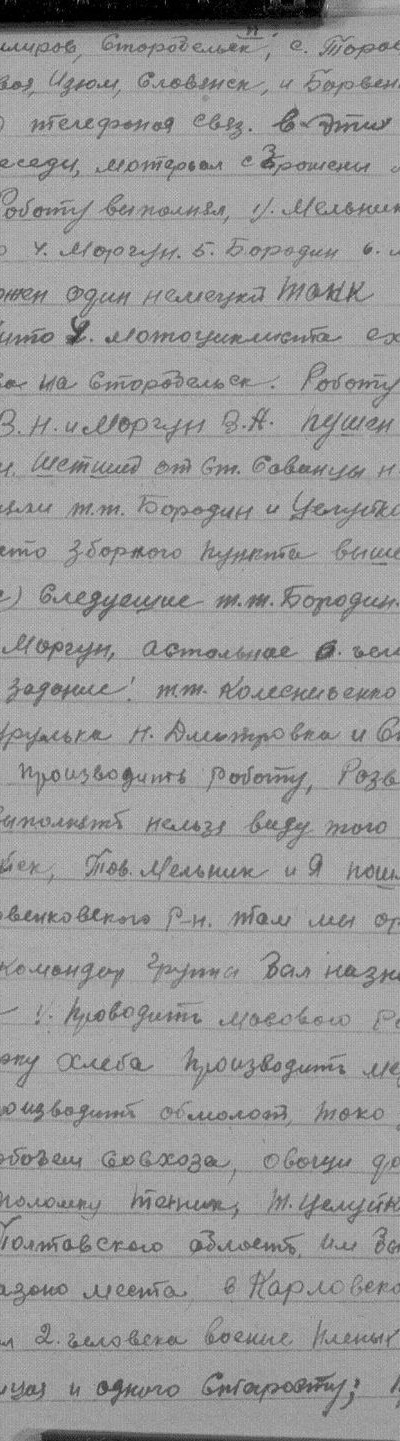 лиров, Старобельск, с. Торов
вая, Изюм, Словянск, и Барвен
телефоная связ. в этих
еседы, мотерьал сброшены
Роботу выполнял, 1). Мельник
4. Моргун. 5. Бородин 6.
жен один немецкй танк
ито 4. мотоциклиста ех
на Старобельск. Роботу
З. Н. и Моргун З.А. пущен
Шетший от Ст. Саванцы н
яли т.т. Бородин и Целутко
сто зборного пункта выше
с) Следуещие т.т. Бородин.
Моргун, астольное 6. чел
задание! тт. Колеснисенко
урулька Н. Дмитровка и Сп
производить роботу, Розв
выполнять нельзя виду того
Тов. Мельник и Я пош
овенковского Р-н. там мы ор
командир групы Вал назна
1). проводить масового Ро
рку хлеба производить ме
роизводить обмолот, токо
обочем совхоза, овощи до
поломку техник, т. Целутк
Полтавского область, им Вы
азоно места, в Карловско
л 2. человека воение пленых
ицая и одного Старосту;